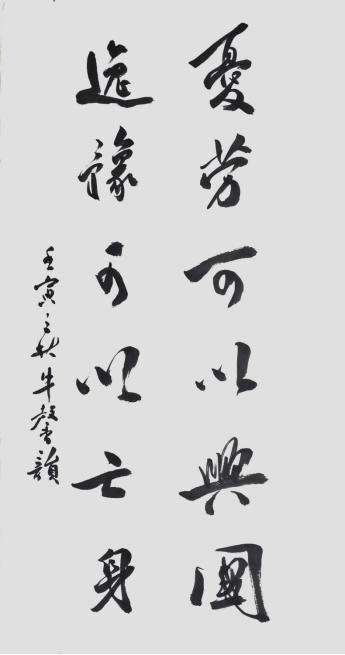 憂勞可以興國
逸豫可以亡身
壬寅之秋牛馨韻